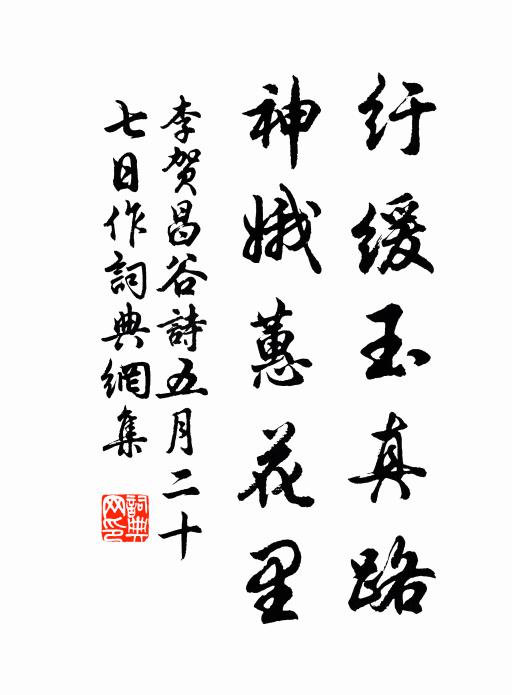 紆緩玉真路
神娥蕙花里
李贺昌谷詩五月二十
七日作詞典網集
詞典
网印